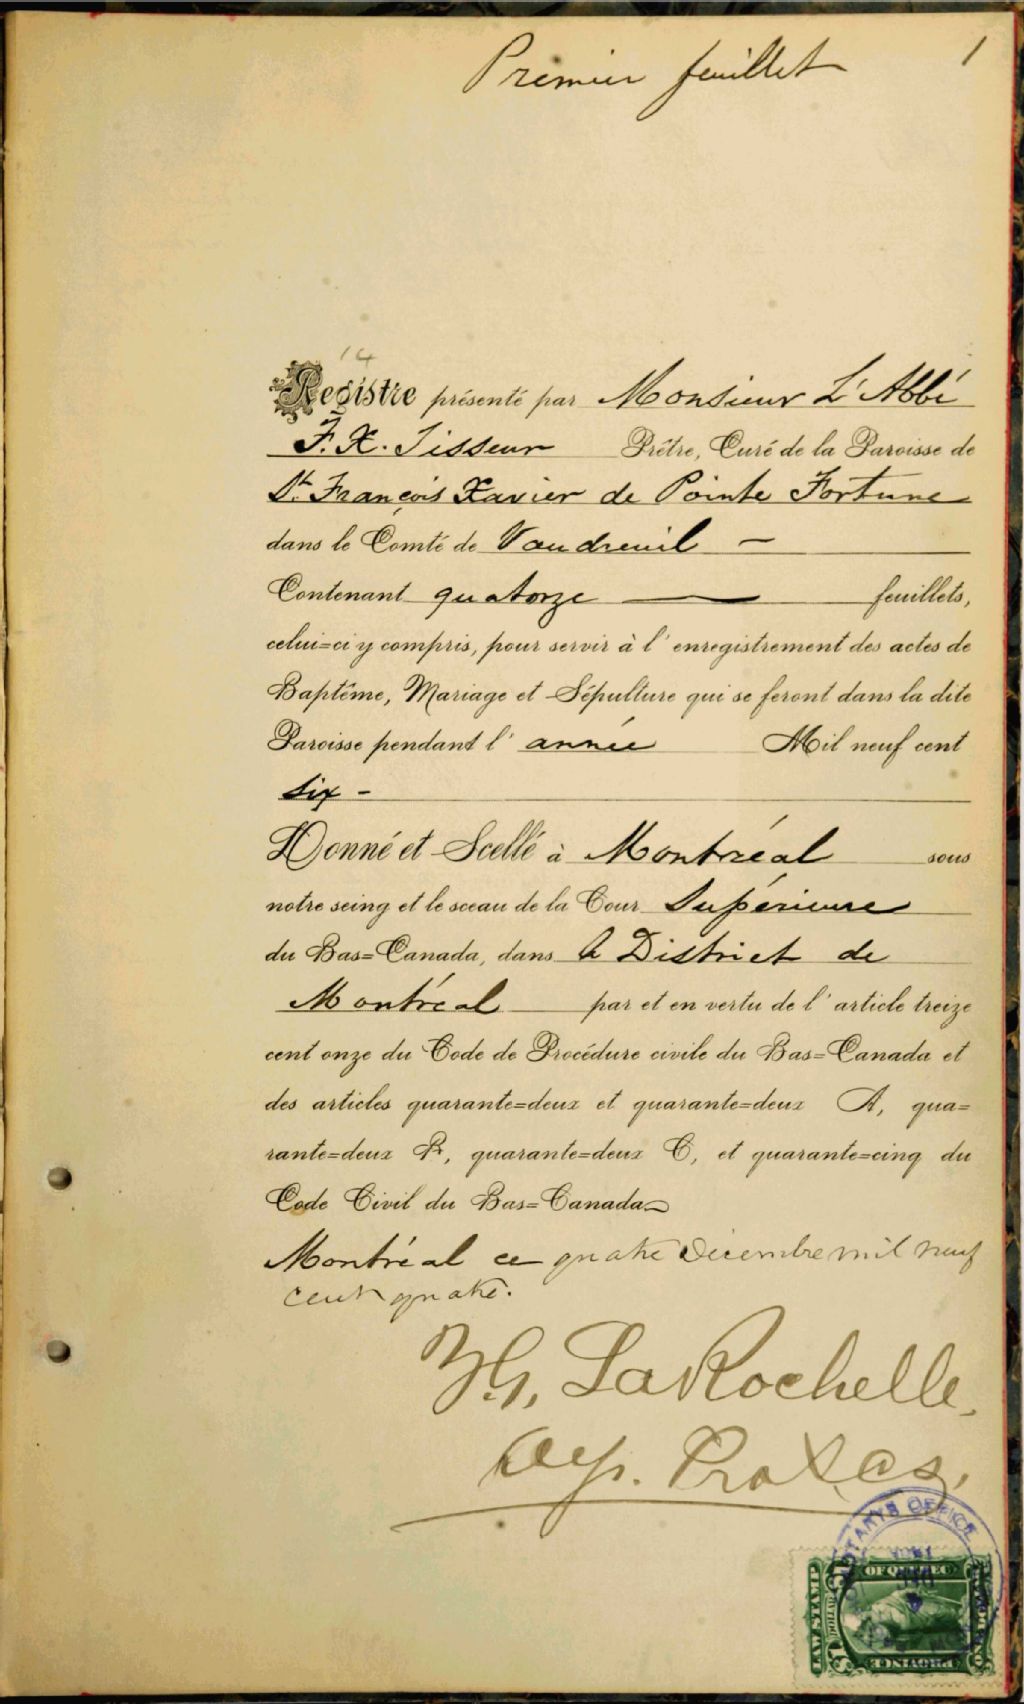 Premier feuillet
1
14
Registre présenté par Monsieur L'Abbé
F. X. Tisseur Prêtre, Curé de la Paroisse de
St. François Xavier de Pointe Fortune
dans le Comté de Vaudreuil -
Contenant quatorze — feuillets,
celui=ci y compris, pour servir à l'enregistrement des actes de
Baptême, Mariage et Sépulture qui se feront dans la dite
Paroisse pendant l'année Mil neuf cent
six -
Donné et Scellé à Montréal sous
notre seing et le sceau de la Cour Supérieure
du Bas=Canada, dans le District de
Montréal par et en vertu de l'article treize
cent onze du Code de Procédure civile du Bas=Canada et
des articles quarante=deux et quarante=deux A, qua=
rante=deux B, quarante=deux C, et quarante=cinq du
Code Civil du Bas=Canada
Montréal ce quatre Décembre mil neuf
cent quatre.
LaRochelle,
Dep. Pro
OFFICE
LAW STAMP
OF QUEBEC
PROVINCE
ONE DOLLAR
$1